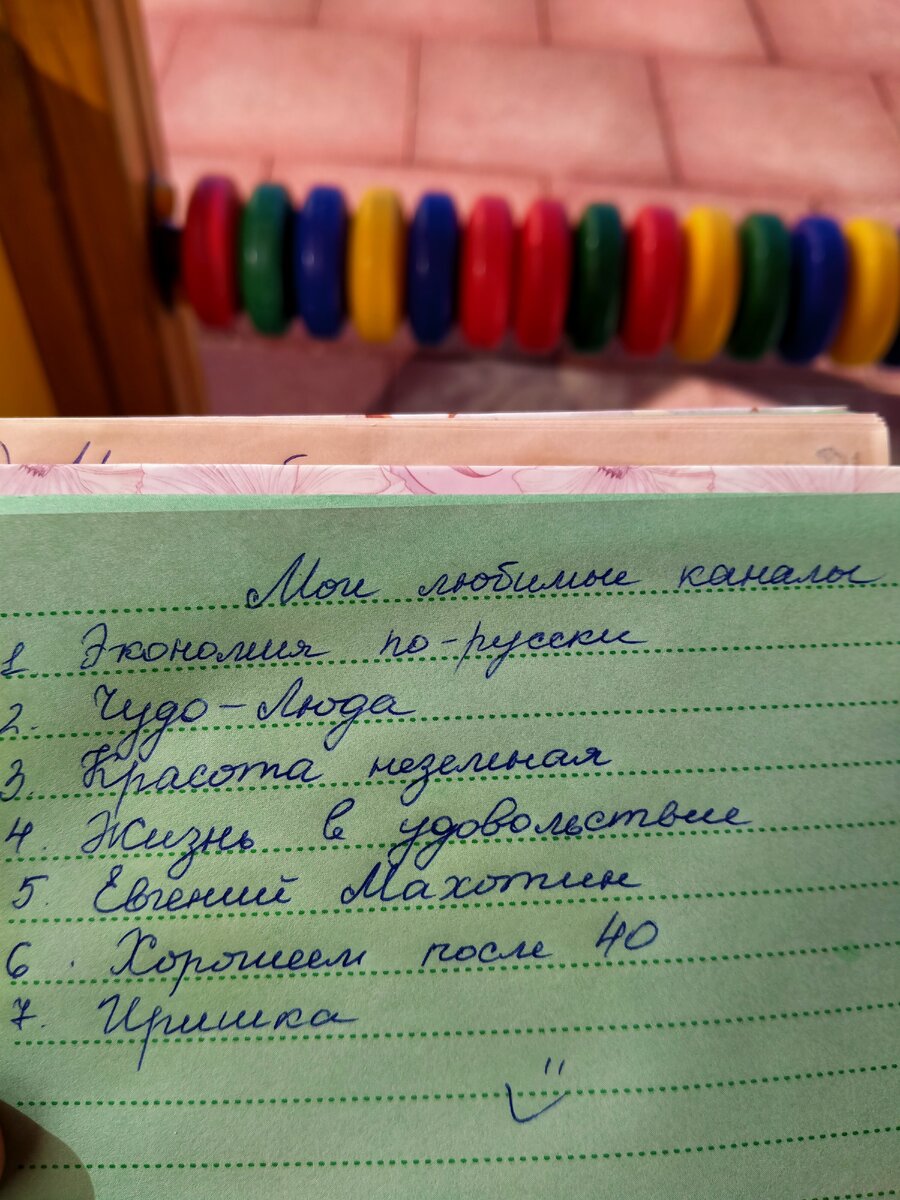 Мои любимые каналы
1 Экономия по-русски
2. Чудо-Люда
3. Красота неземная
4. Жизнь в удовольствие
5. Евгений Махотин
6. Хорошеем после 40
7. Иришка